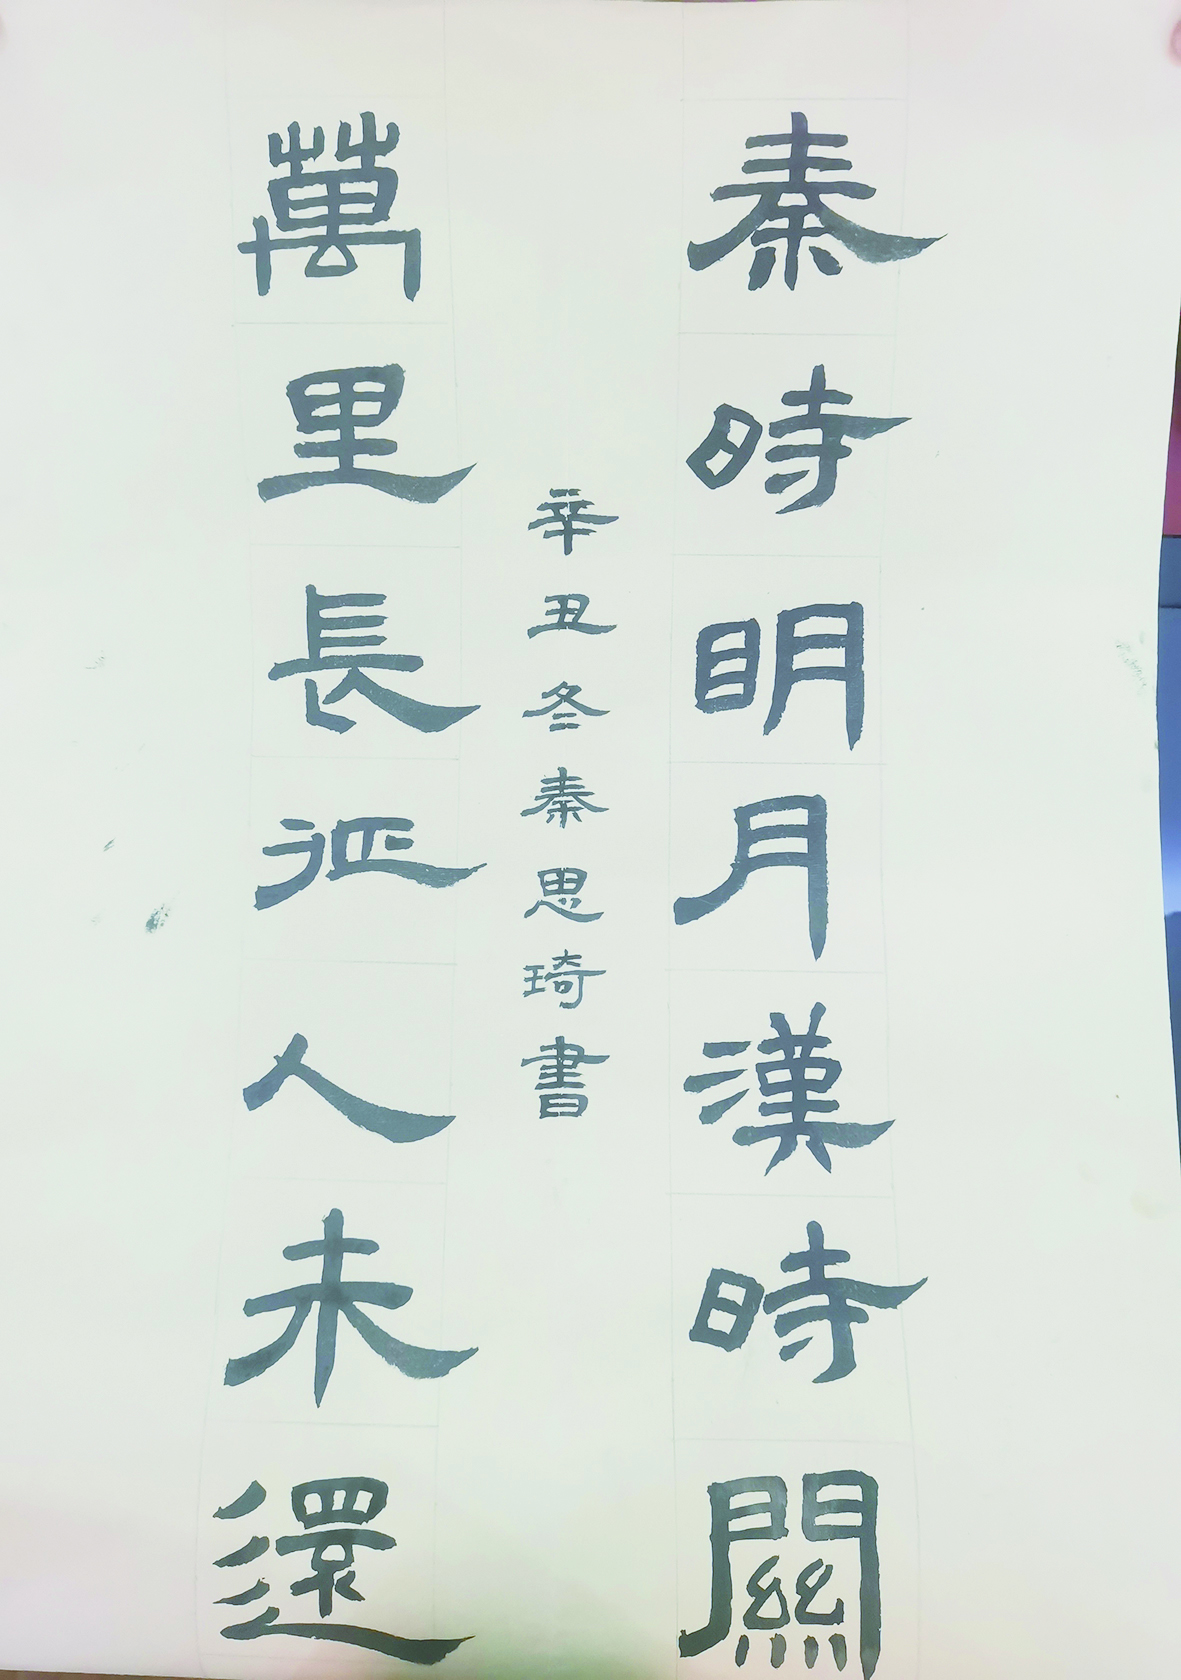 秦時明月漢時關
萬里長征人未還
辛丑冬秦思琦書